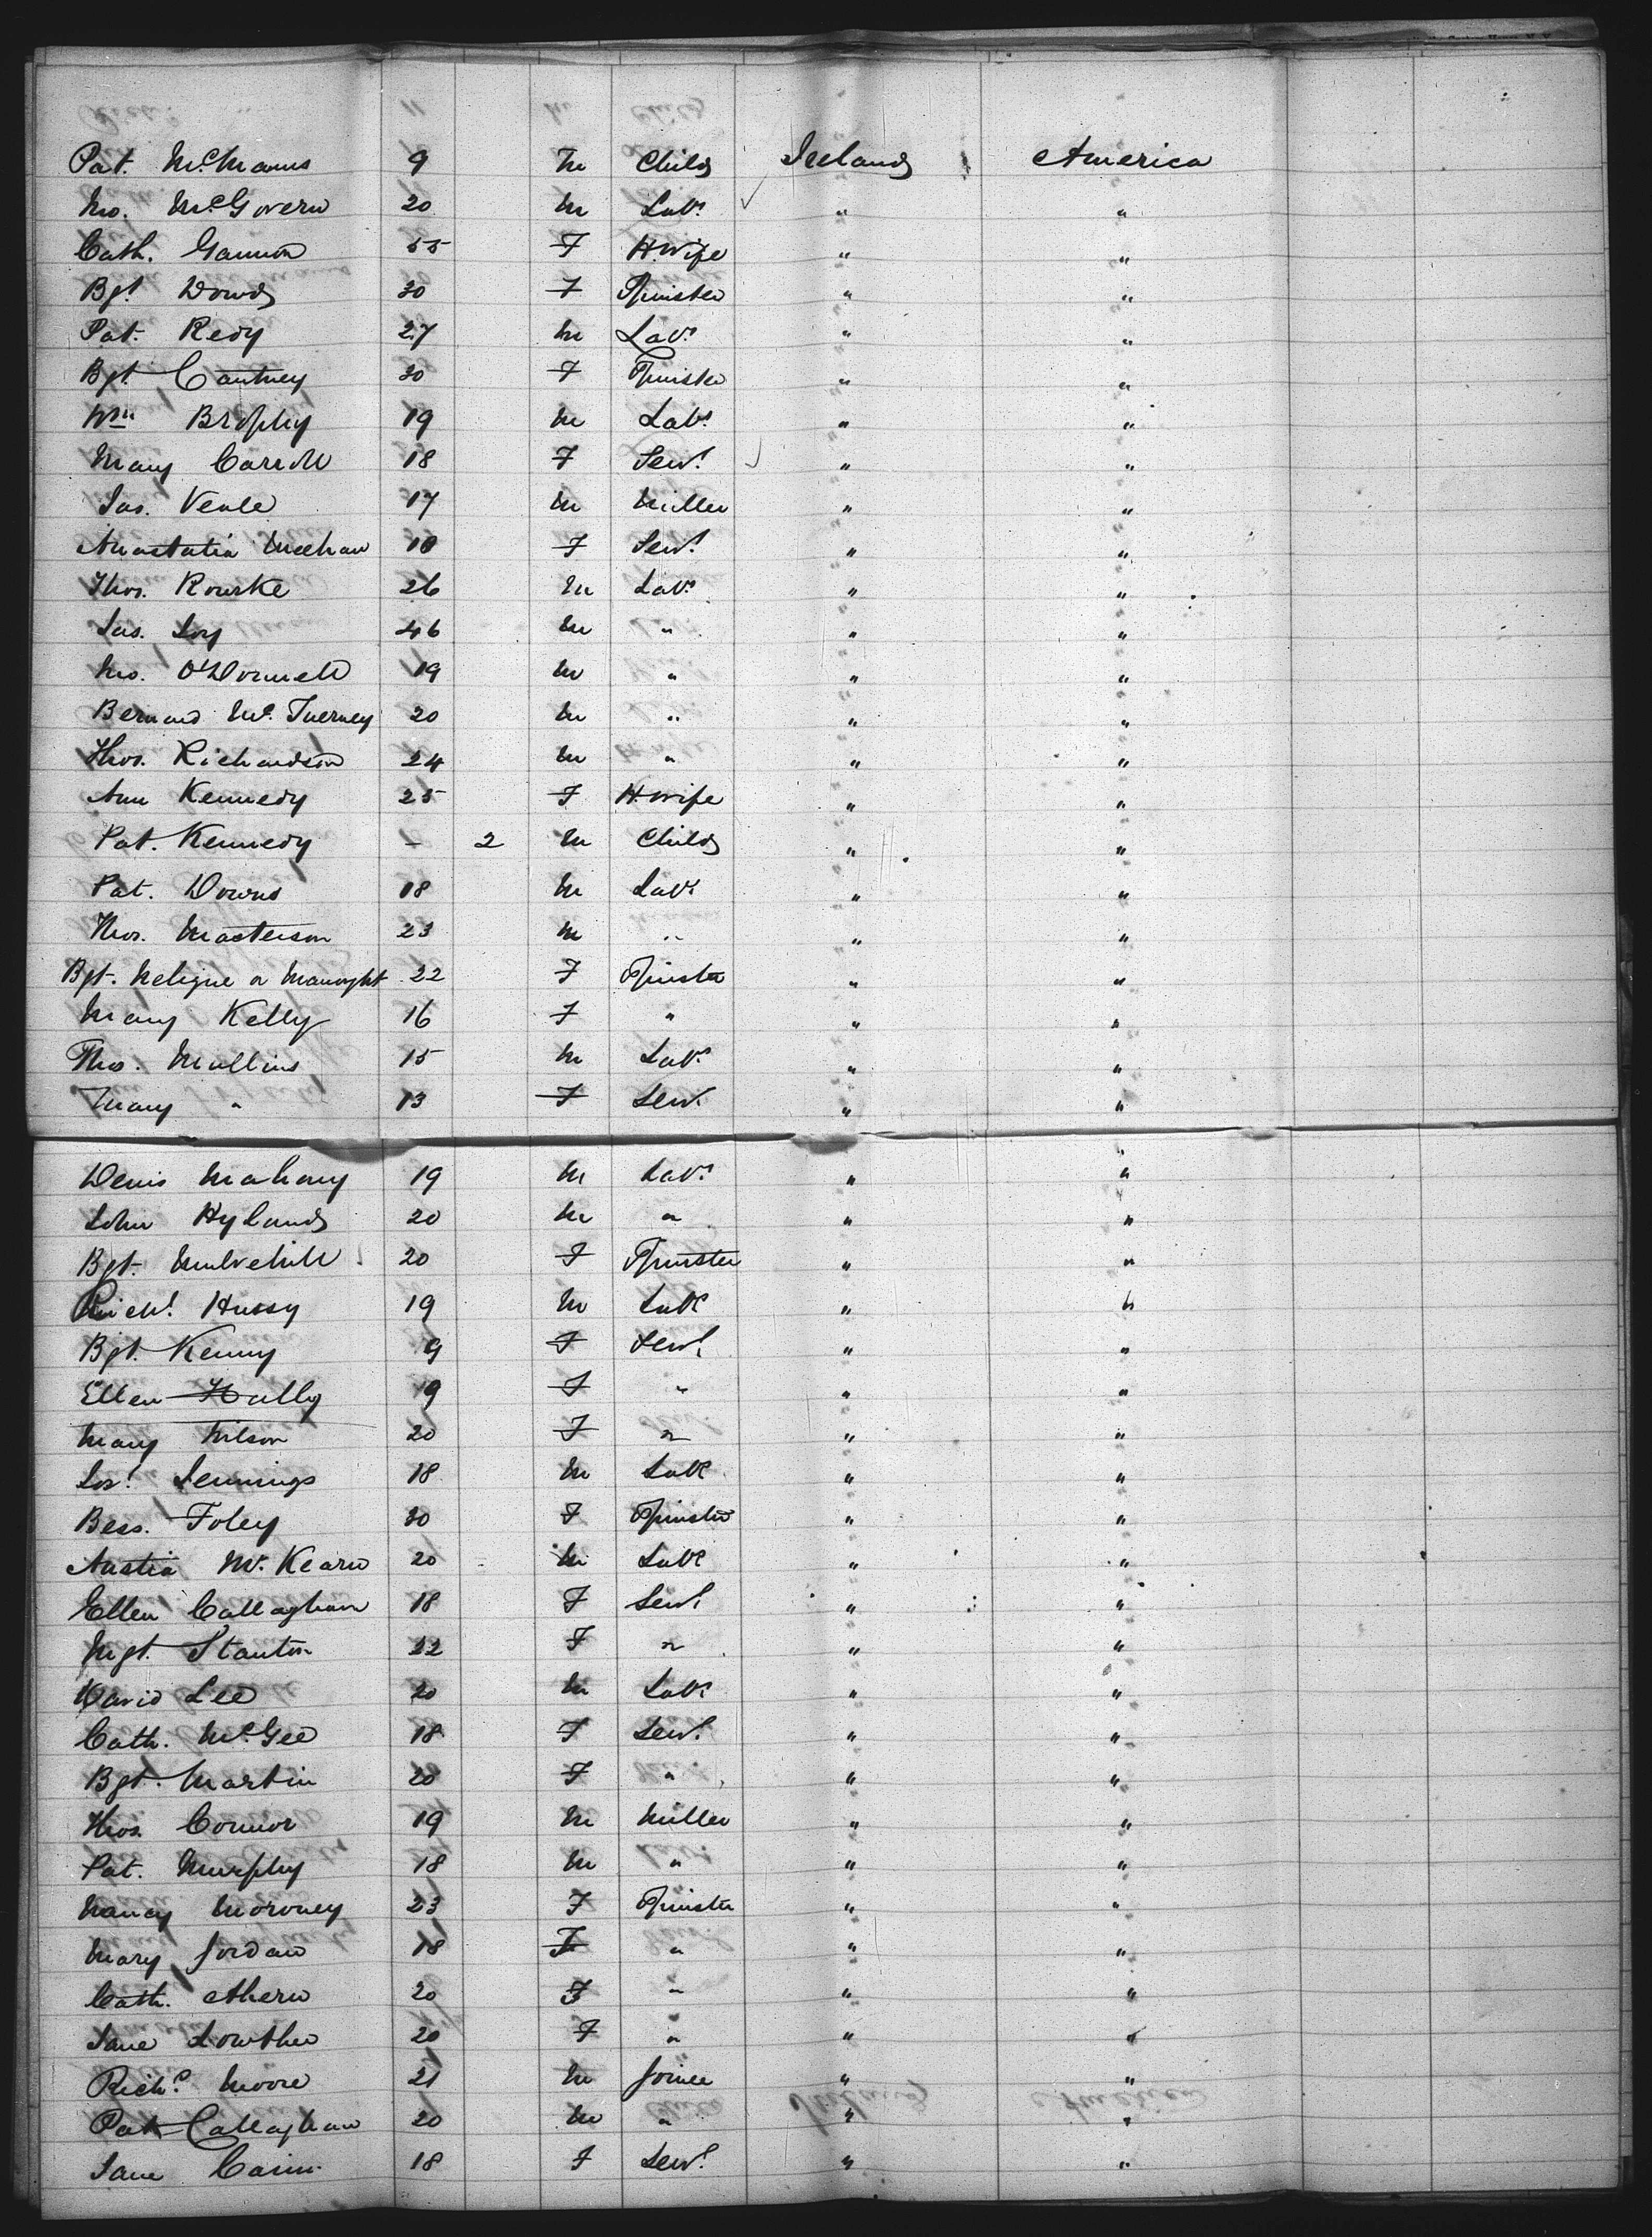 Pat. McManus 9 M Child Ireland America
Jno. McGovern 20 M Labr. " "
Cath. Gannon 55 F H.Wife " "
Bgt. Dowd 30 F Spinster " "
Pat. Redy 27 M Labr. " "
Bgt. Cantney 30 F Spinster " "
Wm. Brophy 19 M Labr. " "
Mary Carroll 18 F Servt. " "
Jas. Veale 17 M Miller " "
Anastatia Meehan 18 F Servt. " "
Thos. Rourke 26 M Labr. " "
Jas. Loy 46 M " " "
Jno. O'Donnell 19 M " " "
Bernard Mc.Tuerney 20 M " " "
Thos. Richardson 24 M " " "
Ann Kennedy 25 F H.Wife " "
Pat. Kennedy - 2 M Child " "
Pat. Downs 18 M Labr. " "
Thos. Masterson 23 M " " "
Bgt. Neligne a 22 F Spinster " "
Mary Kelly 16 F " " "
Thos. Mullins 15 M Labr. " "
Mary " 13 F Serv. " "
Denis Mahony 19 M Labr. " "
John Hyland 20 M " " "
Bgt. Mulvehill 20 F Spinster " "
Michl. Hussy 19 M Labr. " "
Bgt. Kenny 9 F Servt. " "
Ellen Hally 19 F " " "
Mary Wilson 20 F " " "
Josh. Jennings 18 M Labr. " "
Bess. Foley 30 F Spinster " "
Austin Mc.Kearn 20 M Labr. " "
Ellen Callaghan 18 F Servt. " "
Mgt. Stanton 22 F " " "
David Lee 20 M Labr. " "
Cath. McGee 18 F Servt. " "
Bgt. Martin 20 F " " "
Thos. Connor 19 M Miller " "
Pat. Murphy 18 M " " "
Nancy Moroney 23 F Spinster " "
Mary Jordan 18 F " " "
Cath. Ahern 20 F " " "
Jane Lowther 20 F " " "
Richd. Moore 21 M Joiner " "
Pat Callaghan 20 M " " "
Jane Cain 18 F Servt. " "